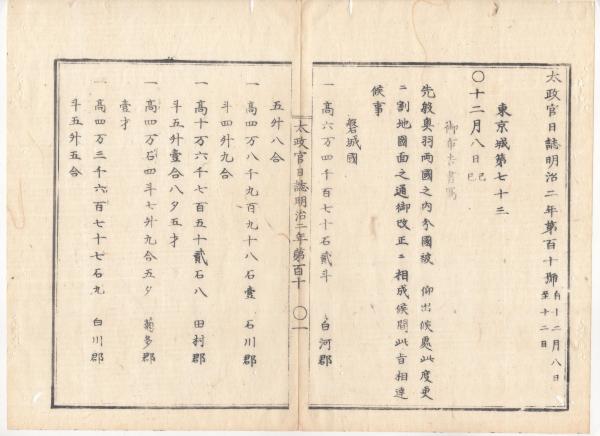 太政官日誌明治二年第百十號 自十二月八日 至十二日
東京城第七十三
〇十二月八日己巳
御布告書寫
先般奥羽両國之内分國被 仰出候處此度更
ニ割地圖面之通御改正ニ相成候間此旨相達
候事
磐城國
一高六万四千百七十石貳斗 白河郡
太政官日誌明治二年第百十 〇一
五升八合
一高四万八千九百九十八石壹 石川郡
斗四升九合
一高十万六千七百五十貳石八 田村郡
斗五升壹合八夕五才
一高四万石四斗七升九合五夕 菊多郡
壹才
一高四万三千六百七十七石九 白川郡
斗五升五合